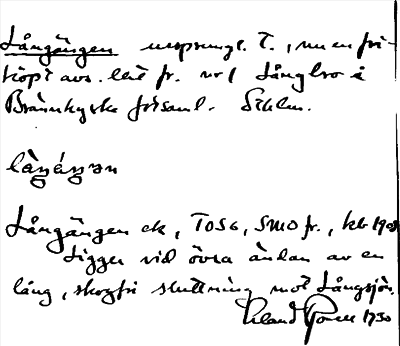 Långängen ursprungl. T., nu en fri-
köpt avs. lht fr. nr 1 Långbro i
Brännkyrka församl. Sthlm.
Långängen ek, TOSG, SMO fr., kb 1908
Ligger vid övra ändan av en
lång, skogfri sluttning mot Långsjön.
1930